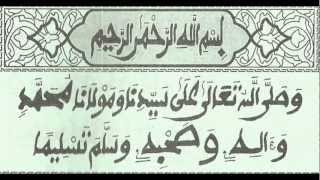 بسم الله الرحمن الرحيم
وصلى الله تعالى على سيدنا ومولانا محمد
وءاله وصحبه وسلم تسليما